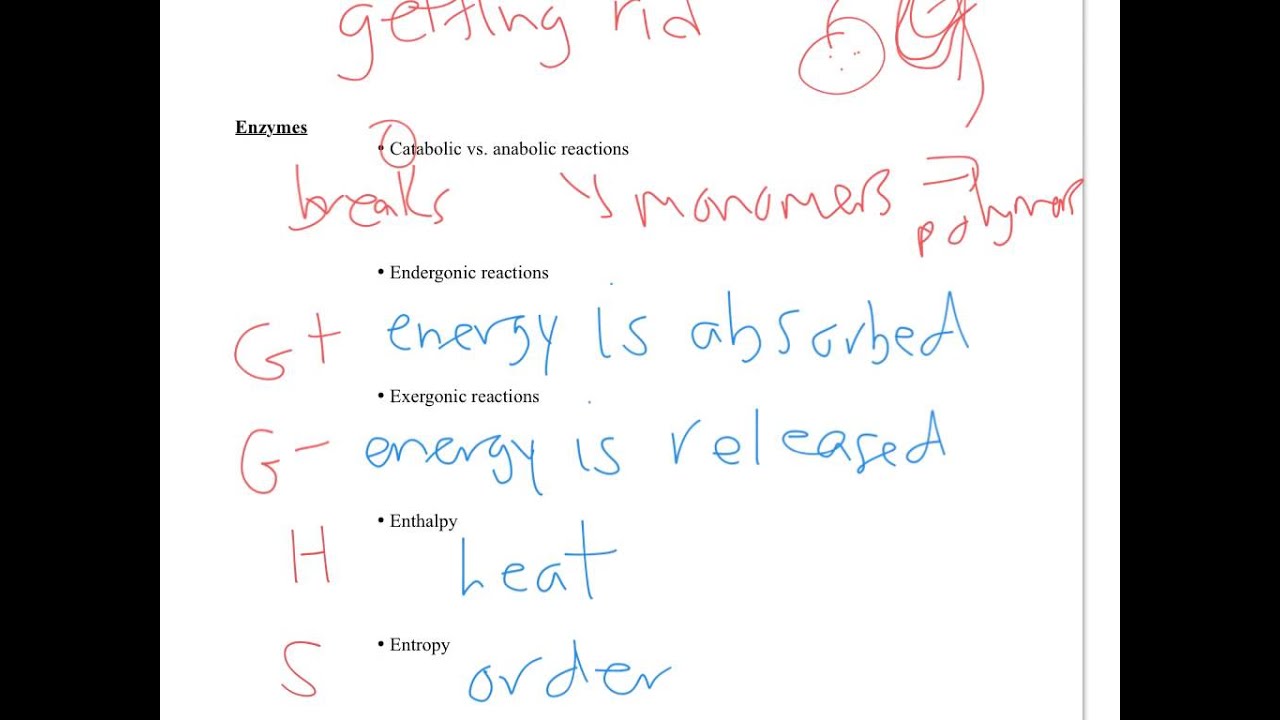 getting rid
Enzymes
• Catabolic vs. anabolic reactions
breaks monomers
polymers
• Endergonic reactions
G+ energy is absorbed
• Exergonic reactions
G- energy is released
• Enthalpy
H heat
• Entropy
S order